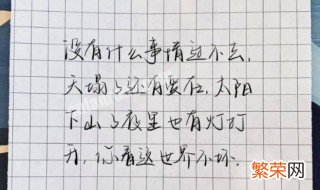 没有什么事情过不去,
天塌了还有震在,太阳
下山了夜里也有灯打
开,你看这世界不坏.
繁荣网